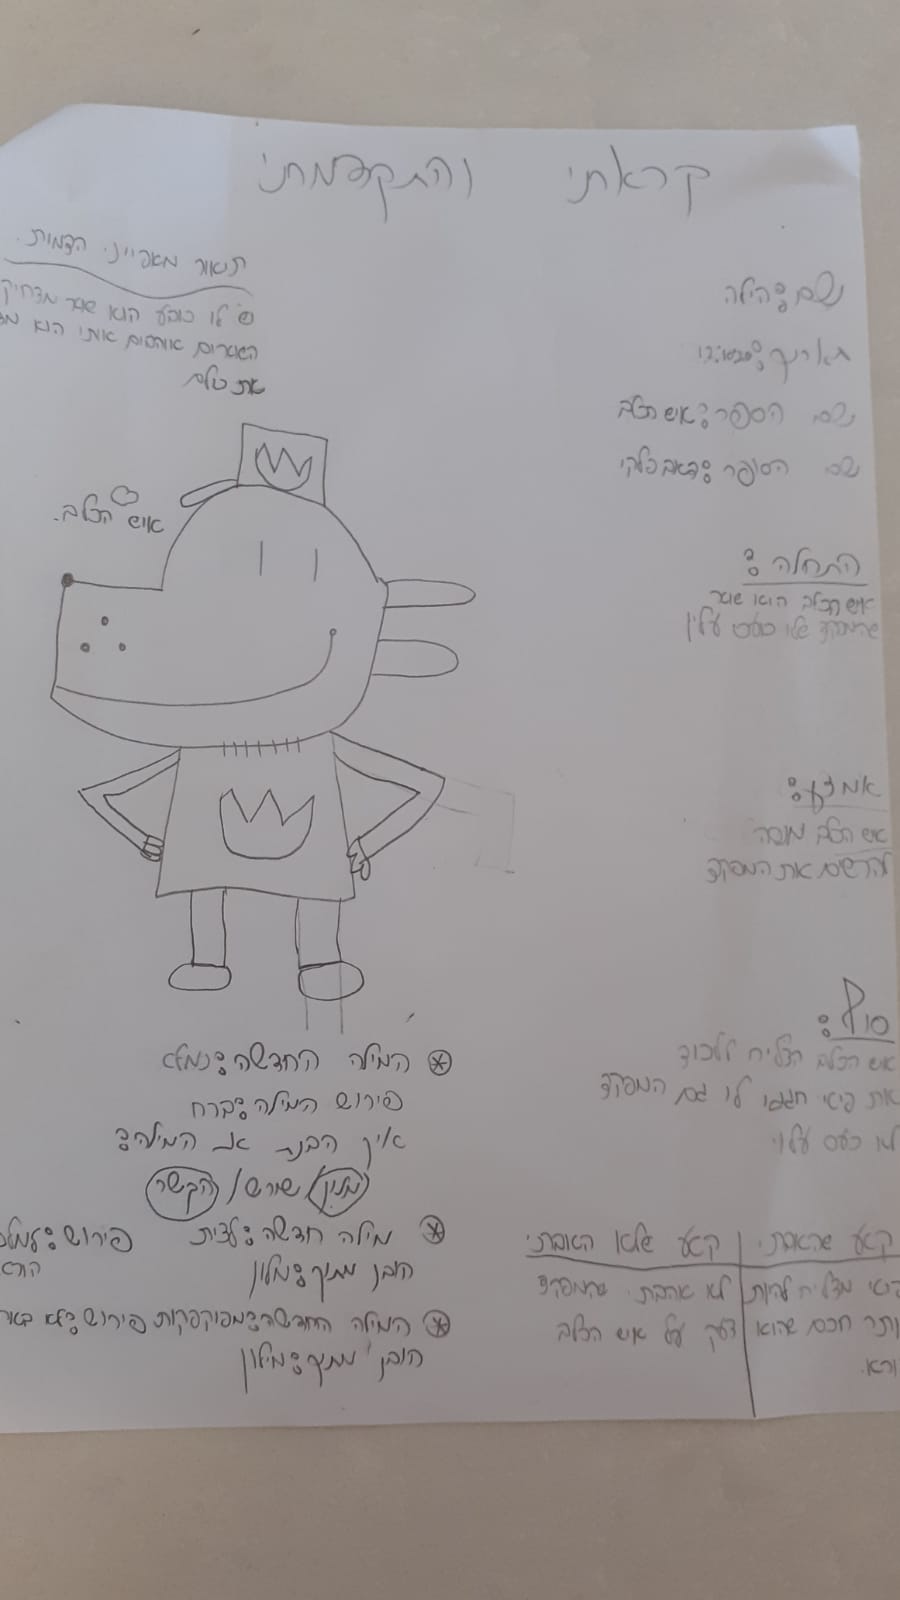 קראתי והתקדמתי
שם: הילה
תאריך:
שם הספר: איש הכלב
שם הסופר: דאב פילקי
התחלה:
איש הכלב הוא שוטר
שהמפקד שלו כועס עליו
אמצע:
איש הכלב מנסה
להרשים את המפקד
סוף:
איש הכלב הצליח ללכוד
את פיטי חגגו לו גם המפקד
לא כעס עליו
קטע שאהבתי.
פיטי מצליח להיות
יותר חכם שהוא
קורא.
קטע שלא אהבתי.
לא אהבתי שהמפקד
צעק על איש הכלב
תיאור מאפייני הדמות.
יש לו כובע הוא שוטר מצחיק
השוטרים אוהבים אותו הוא
את כולם
איש הכלב.
המילה החדשה: נמלא
פירוש המילה: ברח
איך הבנת את המילה:
מילון/שורש/הקשר
מילה חדשה: לציית פירוש:
הובן מתוך: מילון
המילה החדשה: מפוקפקות פירוש: לא
הובן מתוך: מילון